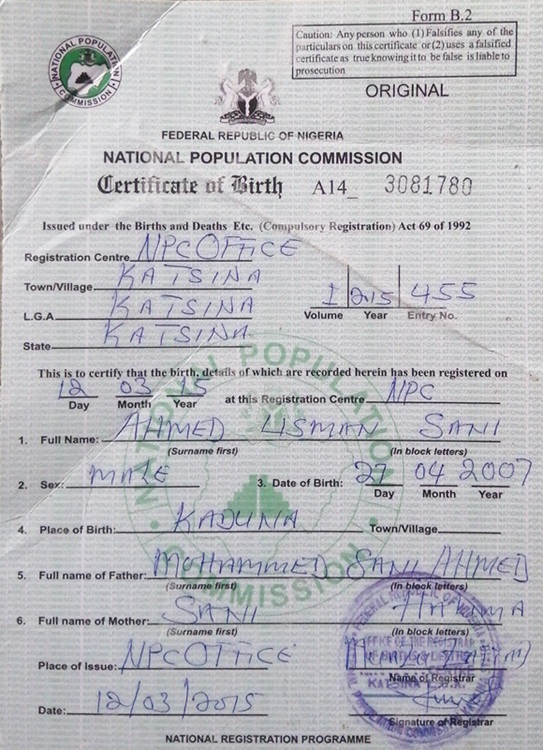 Form B.2
Caution: Any person who (1) Falsifies any of the
particulars on this certificate or (2) uses a falsified
certificate as true knowing it to be false is liable to
prosecution
NATIONAL POPULATION COMMISSION
ORIGINAL
FEDERAL REPUBLIC OF NIGERIA
NATIONAL POPULATION COMMISSION
Certificate of Birth A14_ 3081780
Issued under the Births and Deaths Etc. (Compulsory Registration) Act 69 of 1992
Registration Centre NPC OFFICE
Town/Village KATSINA
L.G.A KATSINA
State KATSINA
I 215 455
Volume Year Entry No.
This is to certify that the birth, details of which are recorded herein has been registered on
12 03 15 at this Registration Centre NPC
Day Month Year
1. Full Name: AHMED USMAN SANI
(Surname first) (In block letters)
2. Sex: MALE 3. Date of Birth: 27 04 2007
Day Month Year
4. Place of Birth: KADUNA Town/Village
5. Full name of Father: MUHAMMED SANI AHMED
(Surname first) (In block letters)
6. Full name of Mother: SANI
(Surname first) (In block letters)
Place of Issue: NPC OFFICE
Name of Registrar
Date: 12/03/2015
Signature of Registrar
NATIONAL REGISTRATION PROGRAMME
NATIONAL POPULATION COMMISSION